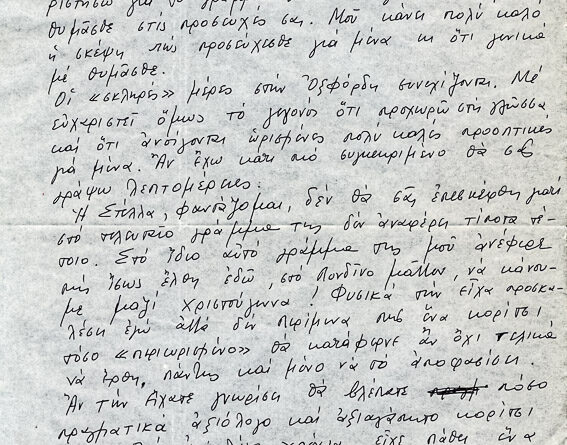 θυμᾶσθε στὶς προσευχές σας. Μοῦ κάνει πολύ καλό
ἡ σκέψη πὼς προσεύχεσθε γιά μένα κι ὅτι γενικά
μέ θυμᾶσθε.
Οἱ «σκληρές» μέρες στήν Ὀξφόρδη συνεχίζονται. Μέ
εὐχαριστεῖ ὅμως τό γεγονός ὅτι προχωρῶ στή γλῶσσα
καί ὅτι ἀνοίγονται ὡρισμένες πολύ καλές προοπτικές
γιά μένα. Ἄν ἔχω κάτι πιό συγκεκριμένο θά σᾶς
γράψω λεπτομέρειες.
Ἡ Στέλλα, φαντάζομαι, δέν θά σᾶς ἐπεσκέφθη γιατί
στό τελευταῖο γράμμα της δέν ἀναφέρει τίποτα τέ-
τοιο. Στό ἴδιο αὐτό γράμμα της μοῦ ἀνέφερε
πὼς ἴσως ἔλθη ἐδῶ, στό Λονδῖνο μᾶλλον, νά κάνου-
με μαζί Χριστούγεννα! Φυσικά τήν εἶχα προσκα-
λέσει ἐγώ ἀλλά δέν περίμενα πὼς ἕνα κορίτσι
τόσο «περιωρισμένο» θά κατάφερνε ἄν ὄχι τελικά
νά ἔρθη, πάντως καί μόνο νά τό ἀποφασίσει.
Ἄν τήν εἴχατε γνωρίσει θά βλέπατε πόσο
πραγματικά ἀξιόλογο καί ἀξιαγάπητο κορίτσι
εἶχε πάθη ἕνα